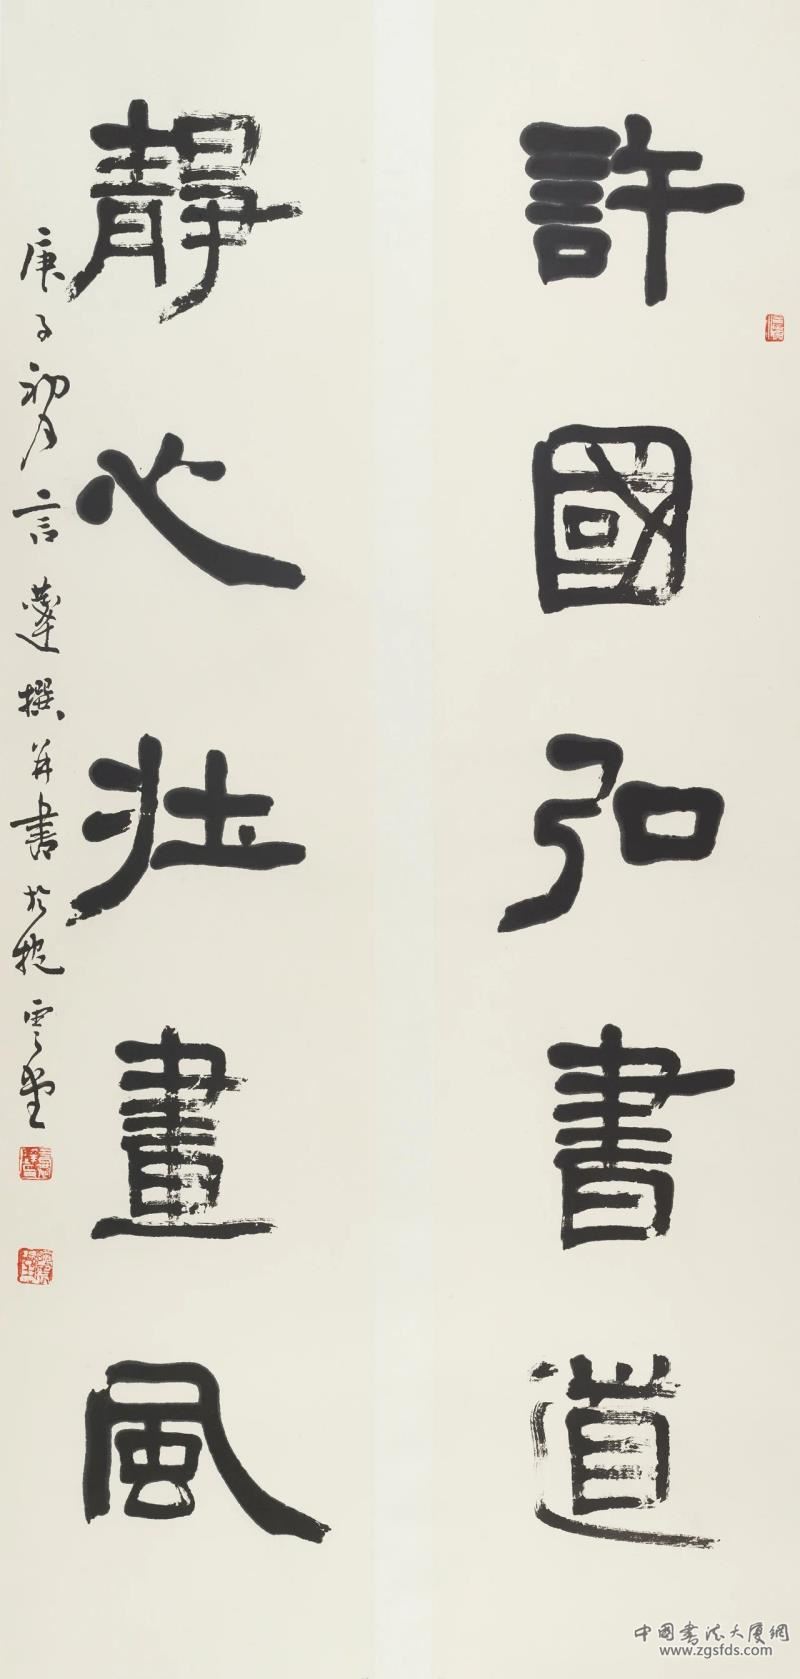 許國弘書道
靜心壯畫風
庚子初月言蓬撰并書於抱雲堂
中國書法大廈網
www.zgsfds.com